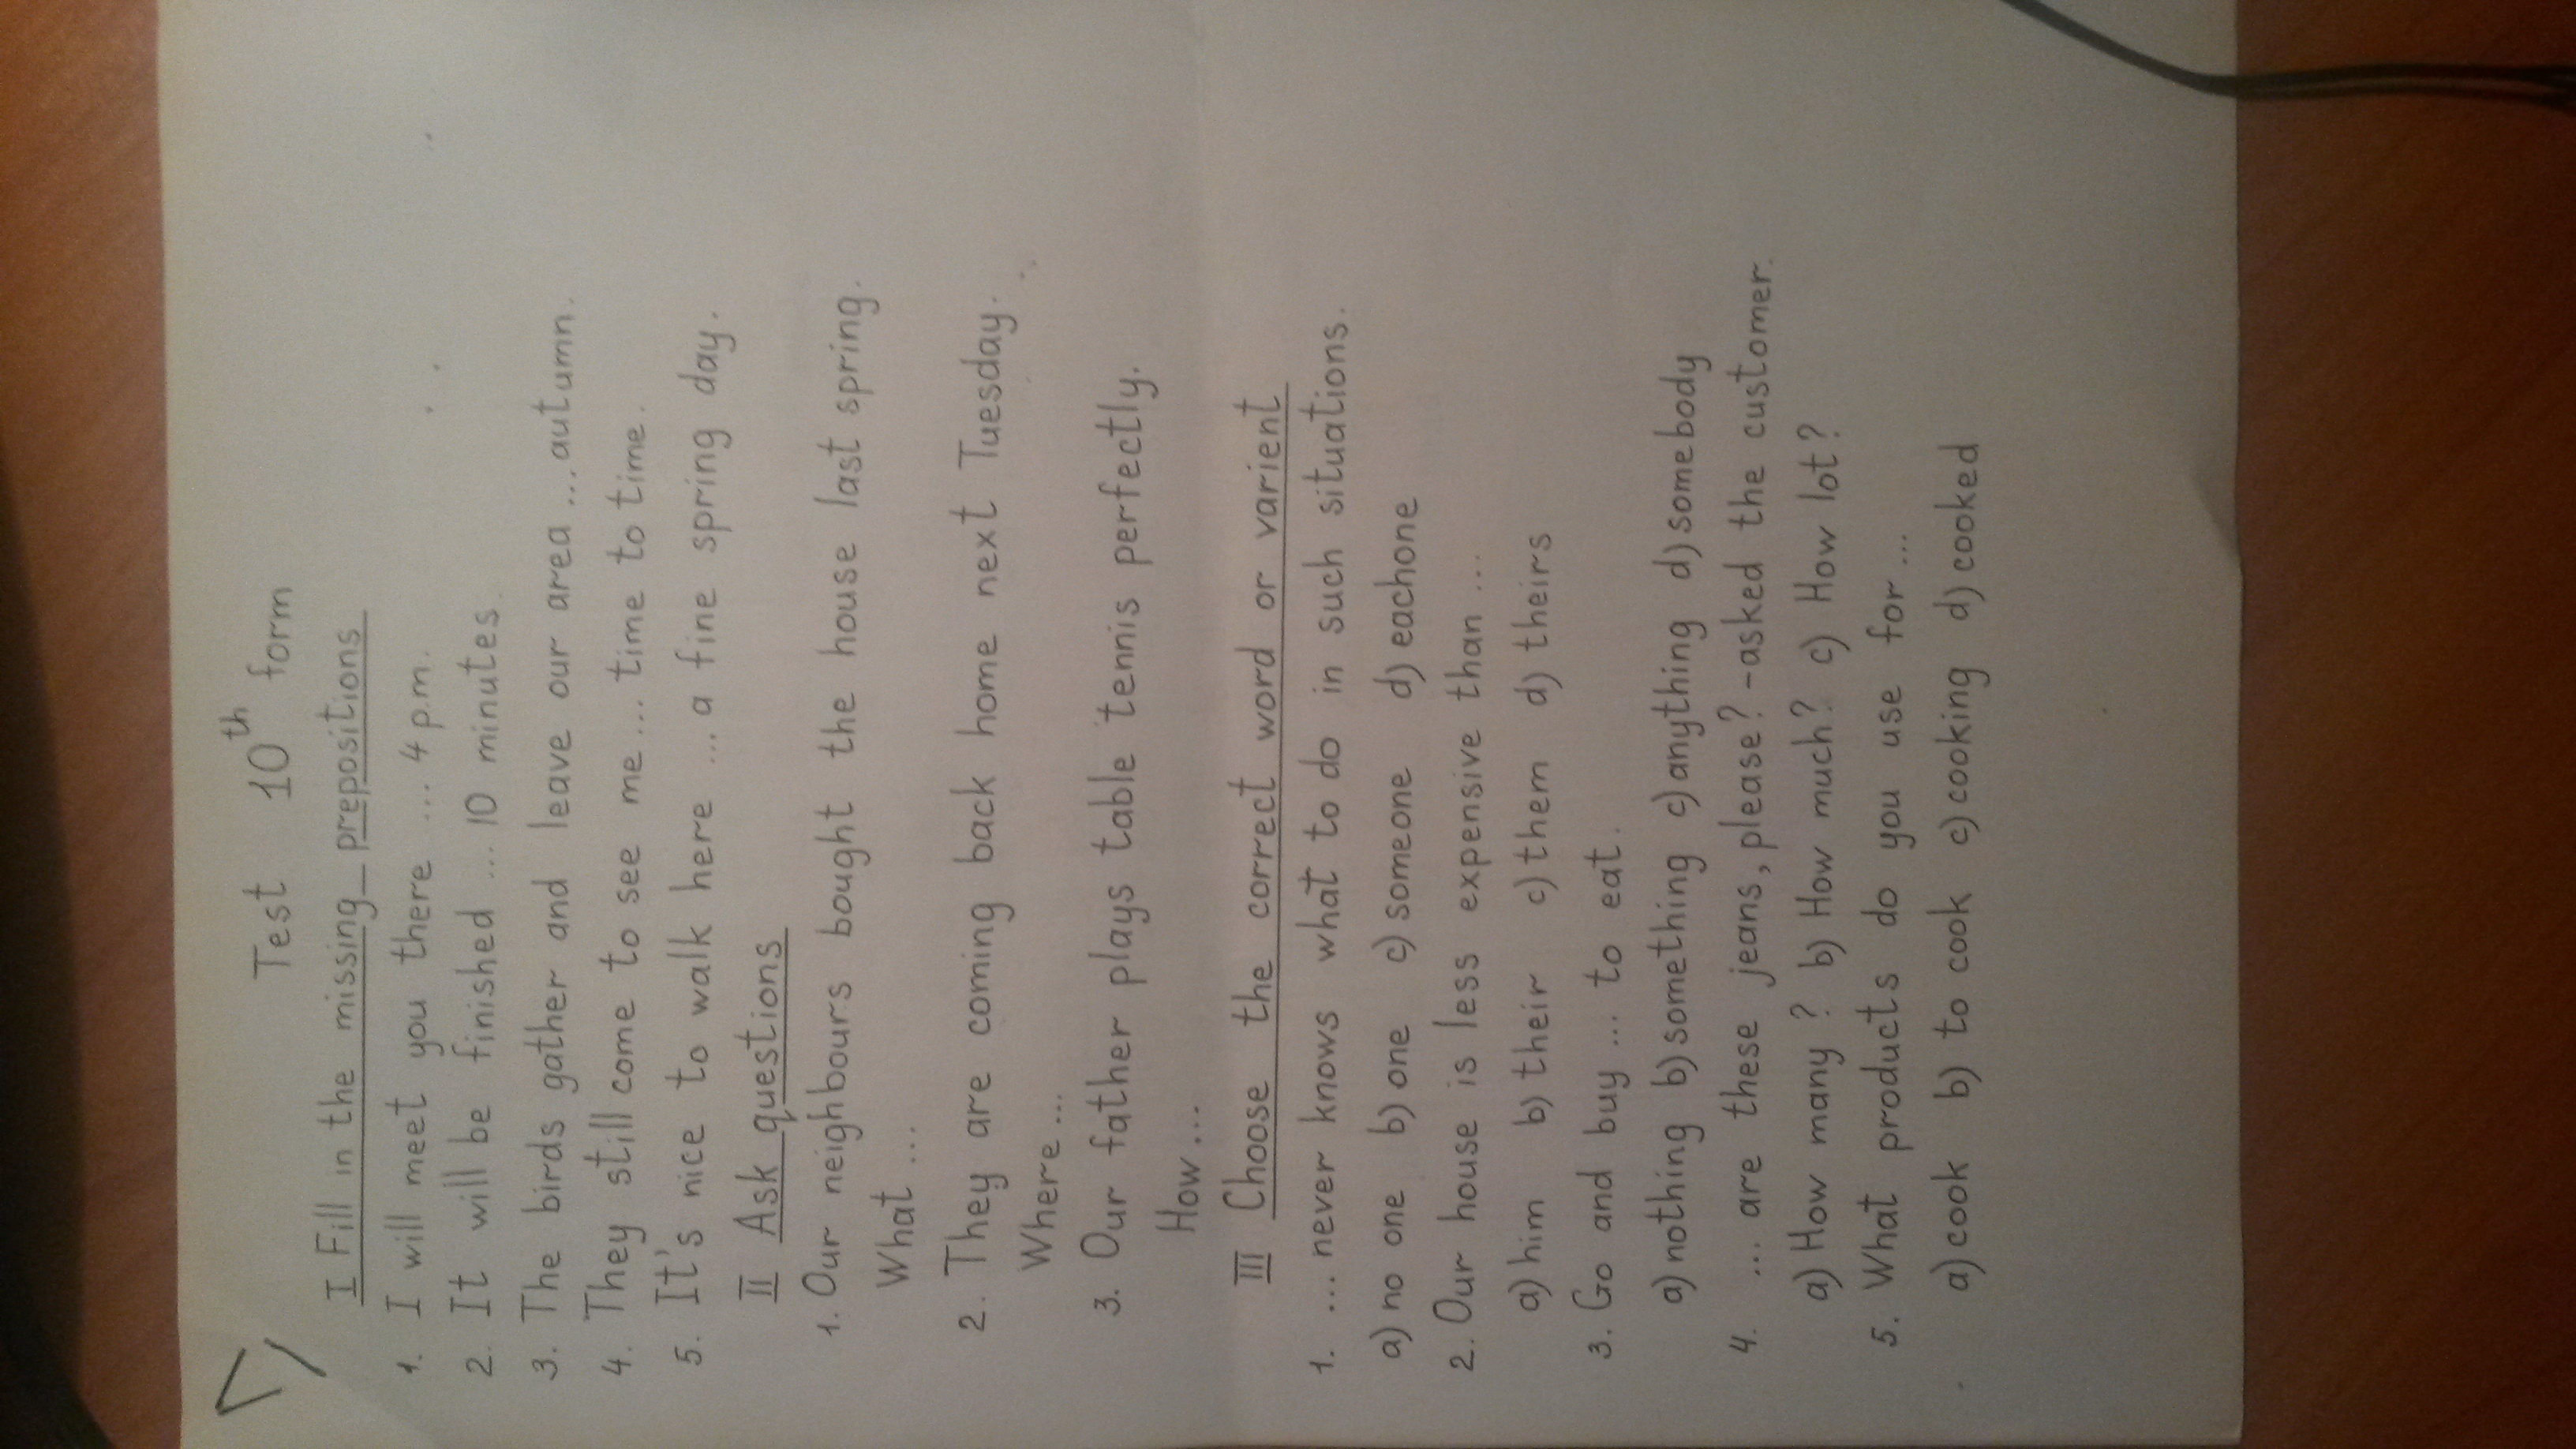 Test 10th form
I Fill in the missing prepositions
1. I will meet you there ... 4 p.m.
2. It will be finished ... 10 minutes
3. The birds gather and leave our area ... autumn.
4. They still come to see me ... time to time.
5. It's nice to walk here ... a fine spring day.
II Ask questions
1. Our neighbours bought the house last spring.
What ...
2. They are coming back home next Tuesday.
Where ...
3. Our father plays table tennis perfectly.
How ...
III Choose the correct word or varient
1. ... never knows what to do in such situations.
a) no one b) one c) someone d) eachone
2. Our house is less expensive than ...
a) him b) their c) them d) theirs
3. Go and buy ... to eat.
a) nothing b) something c) anything d) somebody
4. ... are these jeans, please? - asked the customer.
a) How many? b) How much? c) How lot?
5. What products do you use for ...
a) cook b) to cook c) cooking d) cooked